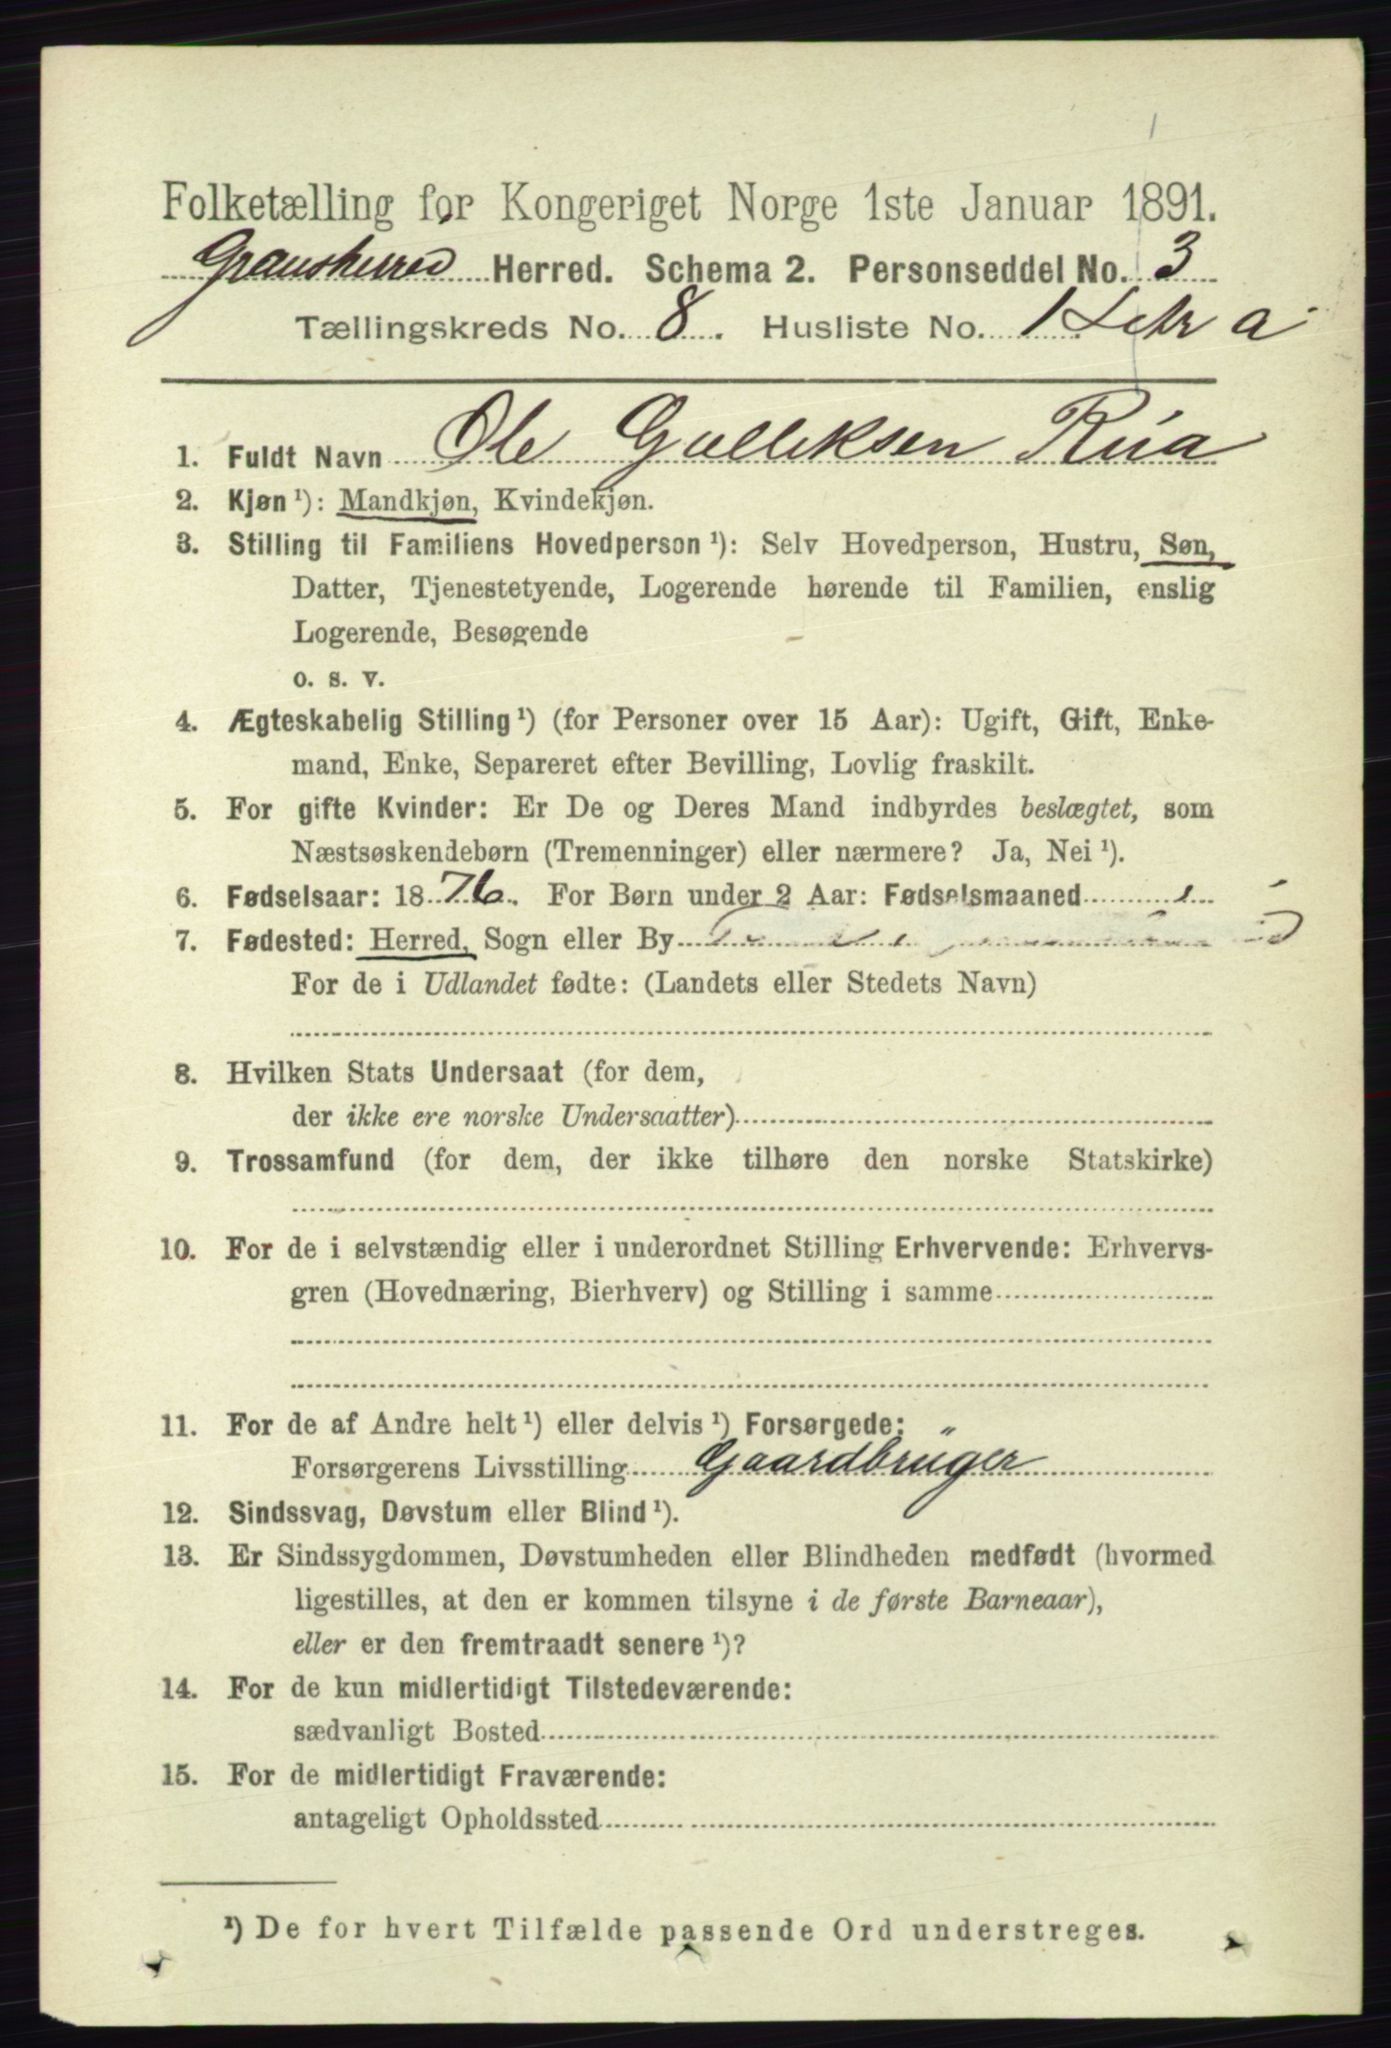 Folketælling for Kongeriget Norge 1ste Januar 1891.
Gransherred Herred. Schema 2. Personseddel No. 3
Tællingskreds No. 8. Husliste No. 1 Litr a
1. Fuldt Navn Ole Gulleksen Rua
2. Kjøn ¹): Mandkjøn, Kvindekjøn.
3. Stilling til Familiens Hovedperson ¹): Selv Hovedperson, Hustru, Søn,
Datter, Tjenestetyende, Logerende hørende til Familien, enslig
Logerende, Besøgende
o. s. v.
4. Ægteskabelig Stilling ¹) (for Personer over 15 Aar): Ugift, Gift, Enke-
mand, Enke, Separeret efter Bevilling, Lovlig fraskilt.
5. For gifte Kvinder: Er De og Deres Mand indbyrdes beslægtet, som
Næstsøskendebørn (Tremenninger) eller nærmere? Ja, Nei ¹).
6. Fødselsaar: 1876. For Børn under 2 Aar: Fødselsmaaned
7. Fødested: Herred, Sogn eller By
For de i Udlandet fødte: (Landets eller Stedets Navn)
8. Hvilken Stats Undersaat (for dem,
der ikke ere norske Undersaatter)
9. Trossamfund (for dem, der ikke tilhøre den norske Statskirke)
10. For de i selvstændig eller i underordnet Stilling Erhvervende: Erhvervs-
gren (Hovednæring, Bierhverv) og Stilling i samme
11. For de af Andre helt ¹) eller delvis ¹) Forsørgede:
Forsørgerens Livsstilling Gaardbruger
12. Sindssvag, Døvstum eller Blind ¹).
13. Er Sindssygdommen, Døvstumheden eller Blindheden medfødt (hvormed
ligestilles, at den er kommen tilsyne i de første Barneaar),
eller er den fremtraadt senere ¹)?
14. For de kun midlertidigt Tilstedeværende:
sædvanligt Bosted
15. For de midlertidigt Fraværende:
antageligt Opholdssted
¹) De for hvert Tilfælde passende Ord understreges.